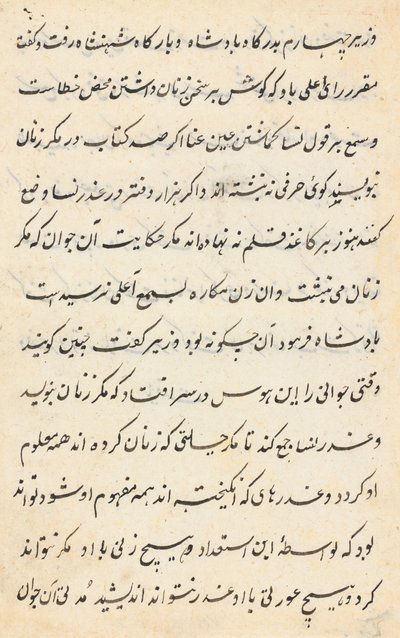 وزیر چهارم بدرگاه بادشاه و بارگاه شهنشاه رفت و گفت
مقرر رای اعلی باد که گوش بر سخن زنان داشتن محض خطاست
و سمع بر قول نسا گماشتن عین عنا اگر صد کتاب در مکر زنان
نبویسند گوئ حرفی نه نبشته اند و اگر هزار دفتر در غدر نسا وضع
کنند هنوز بر کاغذ قلم نه نهاده اند مکر حکایت آن جوان که مکر
زنان می نبشت و ان زن مکاره بسمع اعلی نرسیده است
بادشاه فرمود آن چگونه بود وزیر گفت چنین گویند
وقتی جوانی را این هوس در سر افتاد که مکر زنان بنویسد
و غدر نسا جمع کند تا مکر و حیلتی که زنان کرده اند همه معلوم
او گردد و غدرهای که انگیخته اند همه مفهوم او شود تواند
بود که بواسطهٔ این استعداد هیچ زنی با او مکر نتواند
کرد و هیچ عورتی با او غدر نتواند اندیشید مدتی آن جوان